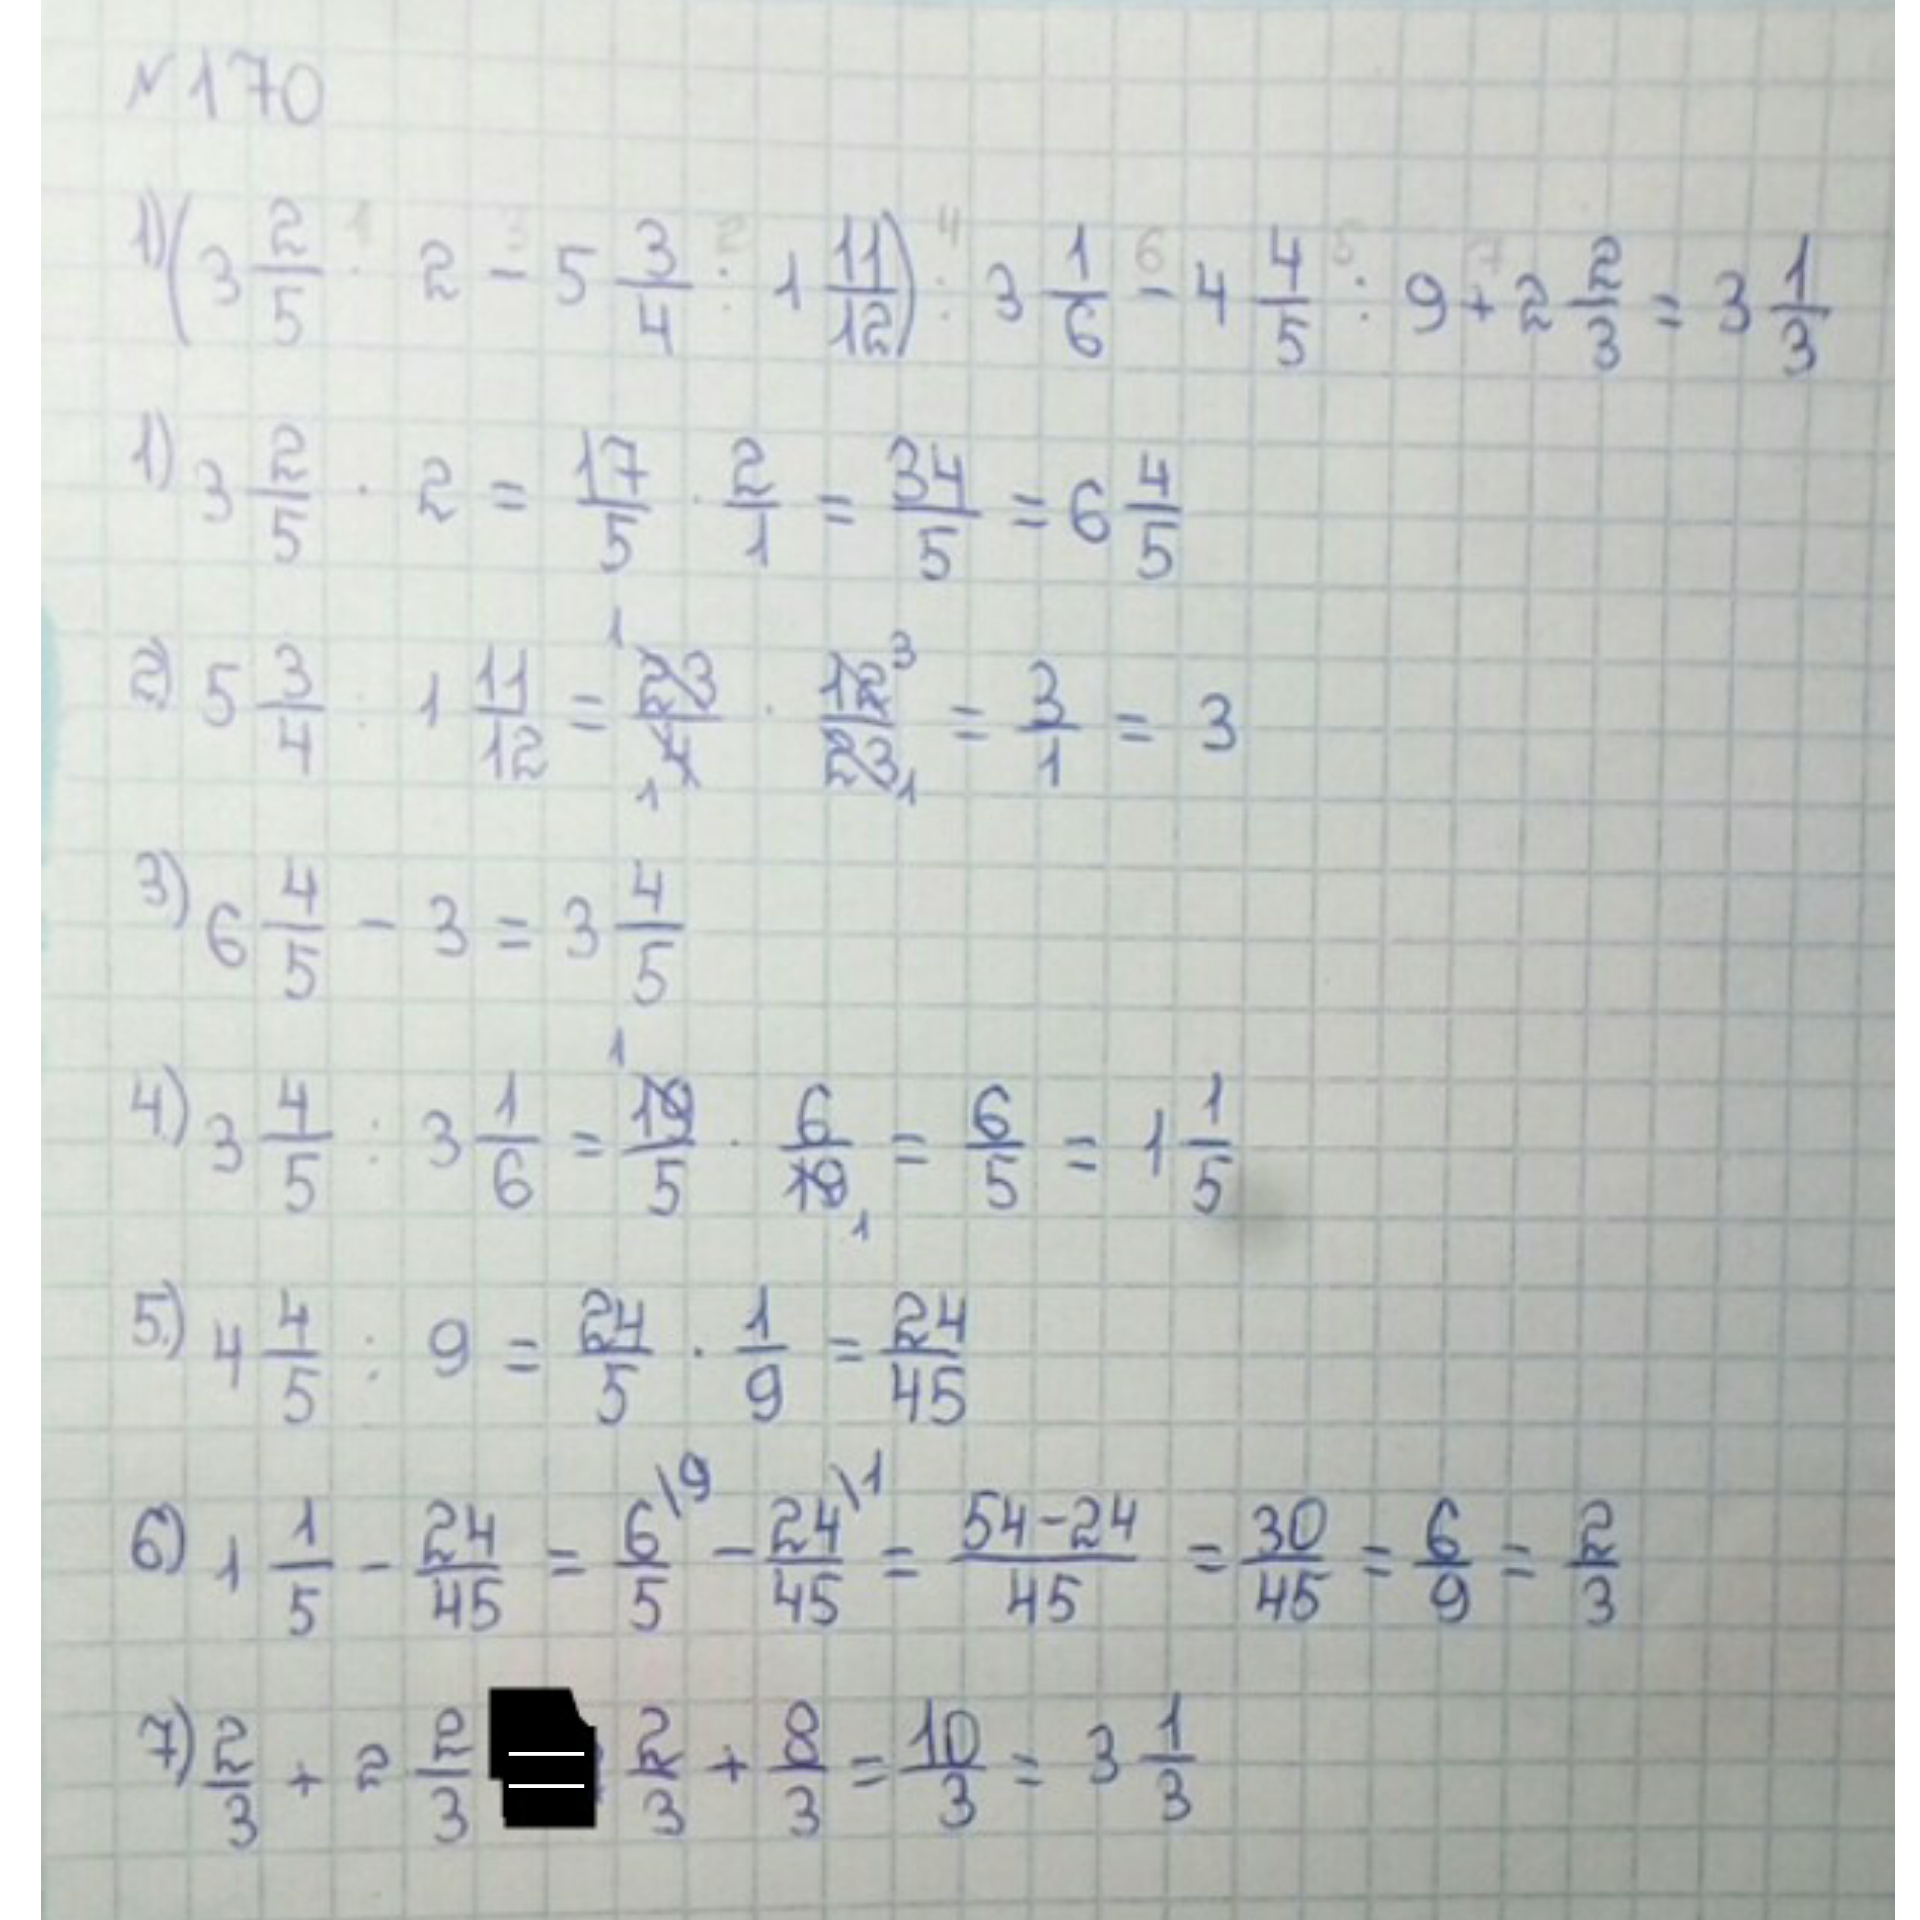 №170
1) (3 2/5 · 2 - 5 3/4 : 1 11/12) : 3 1/6 - 4 4/5 : 9 + 2 2/3 = 3 1/3
1) 3 2/5 · 2 = 17/5 · 2/1 = 34/5 = 6 4/5
2) 5 3/4 : 1 11/12 = 23/4 · 12/23 = 3/1 = 3
3) 6 4/5 - 3 = 3 4/5
4) 3 4/5 : 3 1/6 = 19/5 · 6/19 = 6/5 = 1 1/5
5) 4 4/5 : 9 = 24/5 · 1/9 = 24/45
6) 1 1/5 - 24/45 = 6/5\9 - 24/45\1 = 54-24/45 = 30/45 = 6/9 = 2/3
7) 2/3 + 2 2/3 = 2/3 + 8/3 = 10/3 = 3 1/3